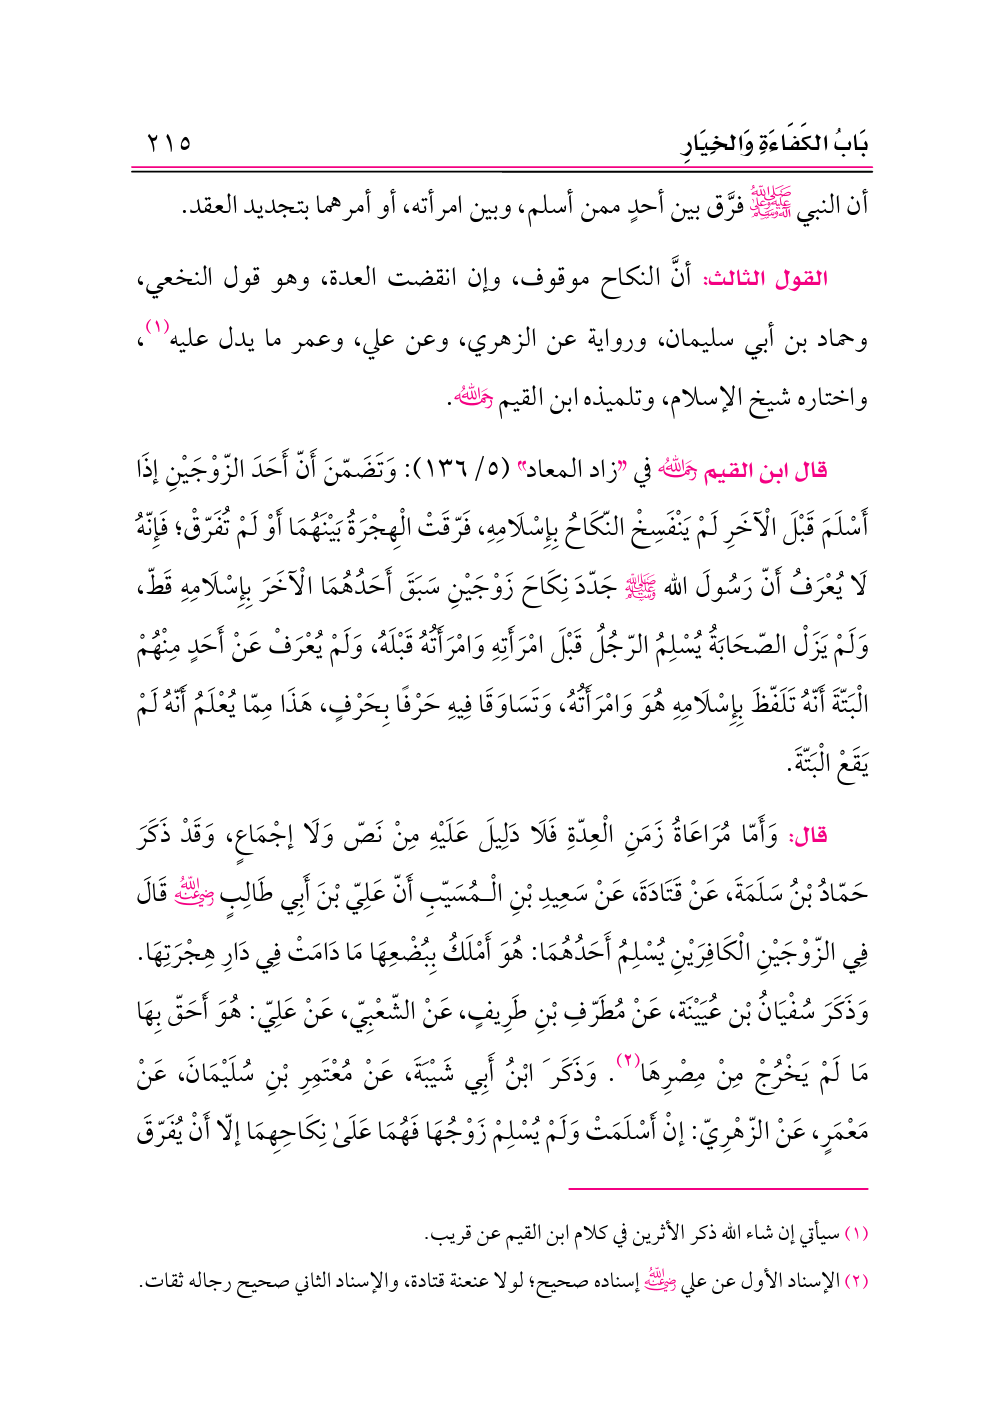 بَابُ الكَفَاءَةِ وَالخِيَارِ ٢١٥
أن النبي ﷺ فرَّق بين أحدٍ ممن أسلم، وبين امرأته، أو أمرهما بتجديد العقد.
القول الثالث: أنَّ النكاح موقوف، وإن انقضت العدة، وهو قول النخعي،
وحماد بن أبي سليمان، ورواية عن الزهري، وعن علي، وعمر ما يدل عليه(١)،
واختاره شيخ الإسلام، وتلميذه ابن القيم رحمه الله.
قال ابن القيم رحمه الله في "زاد المعاد" (٥/ ١٣٦): وَتَضَمّنَ أَنّ أَحَدَ الزّوْجَيْنِ إذَا
أَسْلَمَ قَبْلَ الْآخَرِ لَمْ يَنْفَسِخْ النّكَاحُ بِإِسْلَامِهِ، فَرّقَتْ الْهِجْرَةُ بَيْنَهُمَا أَوْ لَمْ تُفَرّقْ؛ فَإِنّهُ
لَا يُعْرَفُ أَنّ رَسُولَ الله ﷺ جَدّدَ نِكَاحَ زَوْجَيْنِ سَبَقَ أَحَدُهُمَا الْآخَرَ بِإِسْلَامِهِ قَطّ،
وَلَمْ يَزَلْ الصّحَابَةُ يُسْلِمُ الرّجُلُ قَبْلَ امْرَأَتِهِ وَامْرَأَتُهُ قَبْلَهُ، وَلَمْ يُعْرَفْ عَنْ أَحَدٍ مِنْهُمْ
الْبَتّةَ أَنّهُ تَلَفّظَ بِإِسْلَامِهِ هُوَ وَامْرَأَتُهُ، وَتَسَاوَقَا فِيهِ حَرْفًا بِحَرْفٍ، هَذَا مِمّا يُعْلَمُ أَنّهُ لَمْ
يَقَعْ الْبَتّةَ.
قال: وَأَمّا مُرَاعَاةُ زَمَنِ الْعِدّةِ فَلَا دَلِيلَ عَلَيْهِ مِنْ نَصّ وَلَا إجْمَاعٍ، وَقَدْ ذَكَرَ
حَمّادُ بْنُ سَلَمَةَ، عَنْ قَتَادَةَ، عَنْ سَعِيدِ بْنِ الْـمُسَيّبِ أَنّ عَلِيّ بْنَ أَبِي طَالِبٍ رضي الله عنه قَالَ
فِي الزّوْجَيْنِ الْكَافِرَيْنِ يُسْلِمُ أَحَدُهُمَا: هُوَ أَمْلَكُ بِبُضْعِهَا مَا دَامَتْ فِي دَارِ هِجْرَتِهَا.
وَذَكَرَ سُفْيَانُ بْن عُيَيْنَة، عَنْ مُطَرّفِ بْنِ طَرِيفٍ، عَنْ الشّعْبِيّ، عَنْ عَلِيّ: هُوَ أَحَقّ بِهَا
مَا لَمْ يَخْرُجْ مِنْ مِصْرِهَا(٢). وَذَكَرَ ابْنُ أَبِي شَيْبَةَ، عَنْ مُعْتَمِرِ بْنِ سُلَيْمَانَ، عَنْ
مَعْمَرٍ، عَنْ الزّهْرِيّ: إنْ أَسْلَمَتْ وَلَمْ يُسْلِمْ زَوْجُهَا فَهُمَا عَلَىٰ نِكَاحِهِمَا إلّا أَنْ يُفَرّقَ
(١) سيأتي إن شاء الله ذكر الأثرين في كلام ابن القيم عن قريب.
(٢) الإسناد الأول عن علي رضي الله عنه إسناده صحيح؛ لولا عنعنة قتادة، والإسناد الثاني صحيح رجاله ثقات.